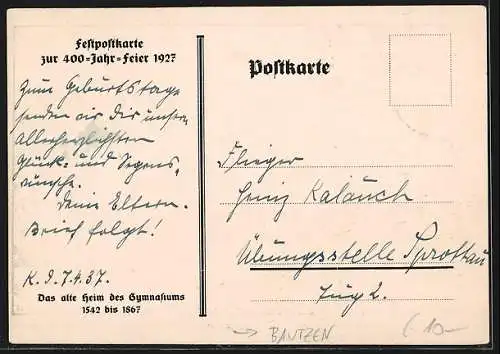 Festpostkarte
zur 400=Jahr=Feier 1927
Zum Geburtstage
senden wir Dir unsere
allerherzlichsten
Glück- und Segens-
wünsche.
Deine Eltern.
Brief folgt!
K. d. 7.4.37.
Das alte Heim des Gymnasiums
1542 bis 1867
Postkarte
Flieger
Heinz Kalauch
Übungsstelle Sprottau
Zug 2.
→ BAUTZEN
10-